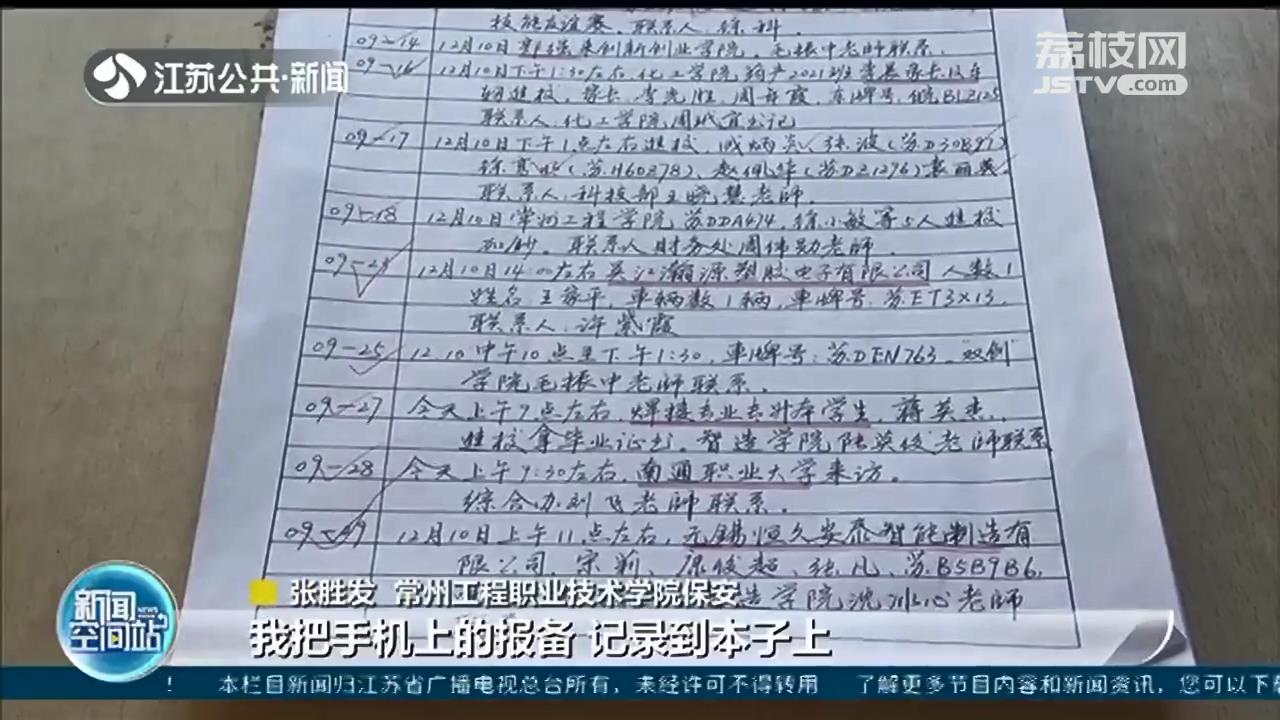 技能友谊赛，联系人：徐科．
09-14 12月10日 来创新创业学院，毛振中老师联系．
09-16 12月10日下午1:30左右，化工学院 2021班 家长
联系人：化工学院周 书记
09-17 12月10日下午1点左右进校，成炳炎、张波（苏D30B97）
（苏H60278）、赵 （苏DZ1296）袁丽英，
联系人：科技部王晓慧老师．
09-18 12月10日常州工程学院，苏DDA474，徐小敏等5人进校
联系人财务处周伟勋老师．
09-24 12月10日14:00左右吴江瀚源塑胶电子有限公司人数1
姓名：王家平，车辆数1辆，车牌号：苏ET3X13，
联系人：许紫霞
09-25 12.10中午10点至下午1:30，车牌号：苏DEN763，双创
学院毛振中老师联系．
09-27 今天上午9点左右，焊接专业专升本学生，蒋英杰，
进校拿毕业证书，智造学院陆英俊老师联系
09-28 今天上午9:30左右，南通职业大学来访。
综合办刘飞老师联系．
09-29 12月10日上午11点左右，无锡恒久安泰智能制造有
限公司，宗莉、 俊超、张凡，苏B5B9B6，
造学院沈冰心老师
江苏公共·新闻
荔枝网
JSTV.com
张胜发 常州工程职业技术学院保安
我把手机上的报备 记录到本子上
新闻
NEWS
空间站
！ 本栏目新闻归江苏省广播电视总台所有，未经许可不得转用 了解更多节目内容和新闻资讯，您可以下